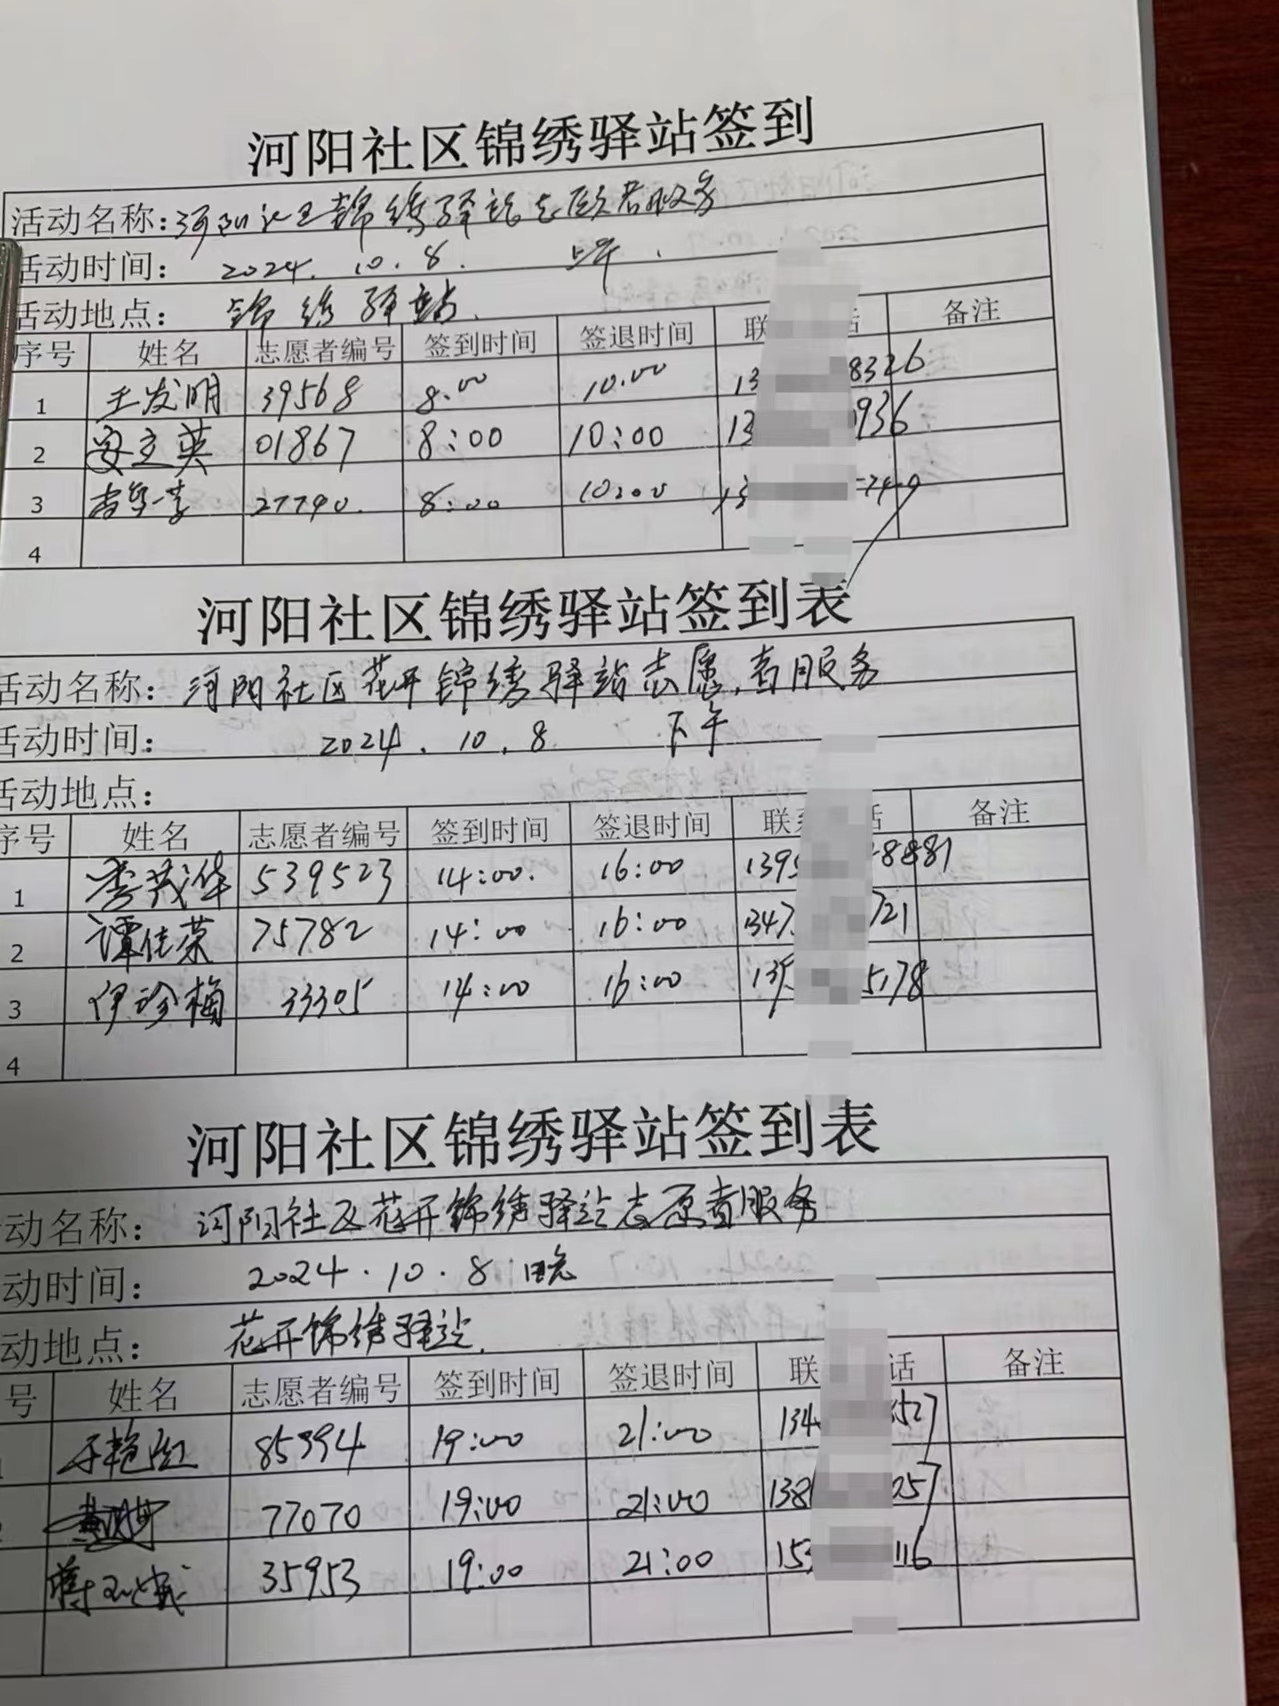 河阳社区锦绣驿站签到
活动名称:河阳社区锦绣驿站志愿者服务
活动时间: 2024.10.8. 上午.
活动地点: 锦绣驿站.
序号 姓名 志愿者编号 签到时间 签退时间 联 话 备注
1 王发明 39568 8.00 10.00 13 8326
2 安立英 01867 8:00 10:00 13 936
3 27790. 8:00 10:00 13
4
河阳社区锦绣驿站签到表
活动名称: 河阳社区花开锦绣驿站志愿者服务
活动时间: 2024.10.8 下午
活动地点:
序号 姓名 志愿者编号 签到时间 签退时间 联系 话 备注
1 李茂华 539523 14:00. 16:00 139 8881
2 谭佳荣 75782 14:00 16:00 1347 721
3 伊珍梅 33305 14:00 16:00 135 5178
4
河阳社区锦绣驿站签到表
动名称: 河阳社区花开锦绣驿站志愿者服务
动时间: 2024.10.8 晚
动地点: 花开锦绣驿站.
号 姓名 志愿者编号 签到时间 签退时间 联 话 备注
于艳红 85394 19:00 21:00 134 527
77070 19:00 21:00 138 257
蒋 35953 19:00 21:00 153 116